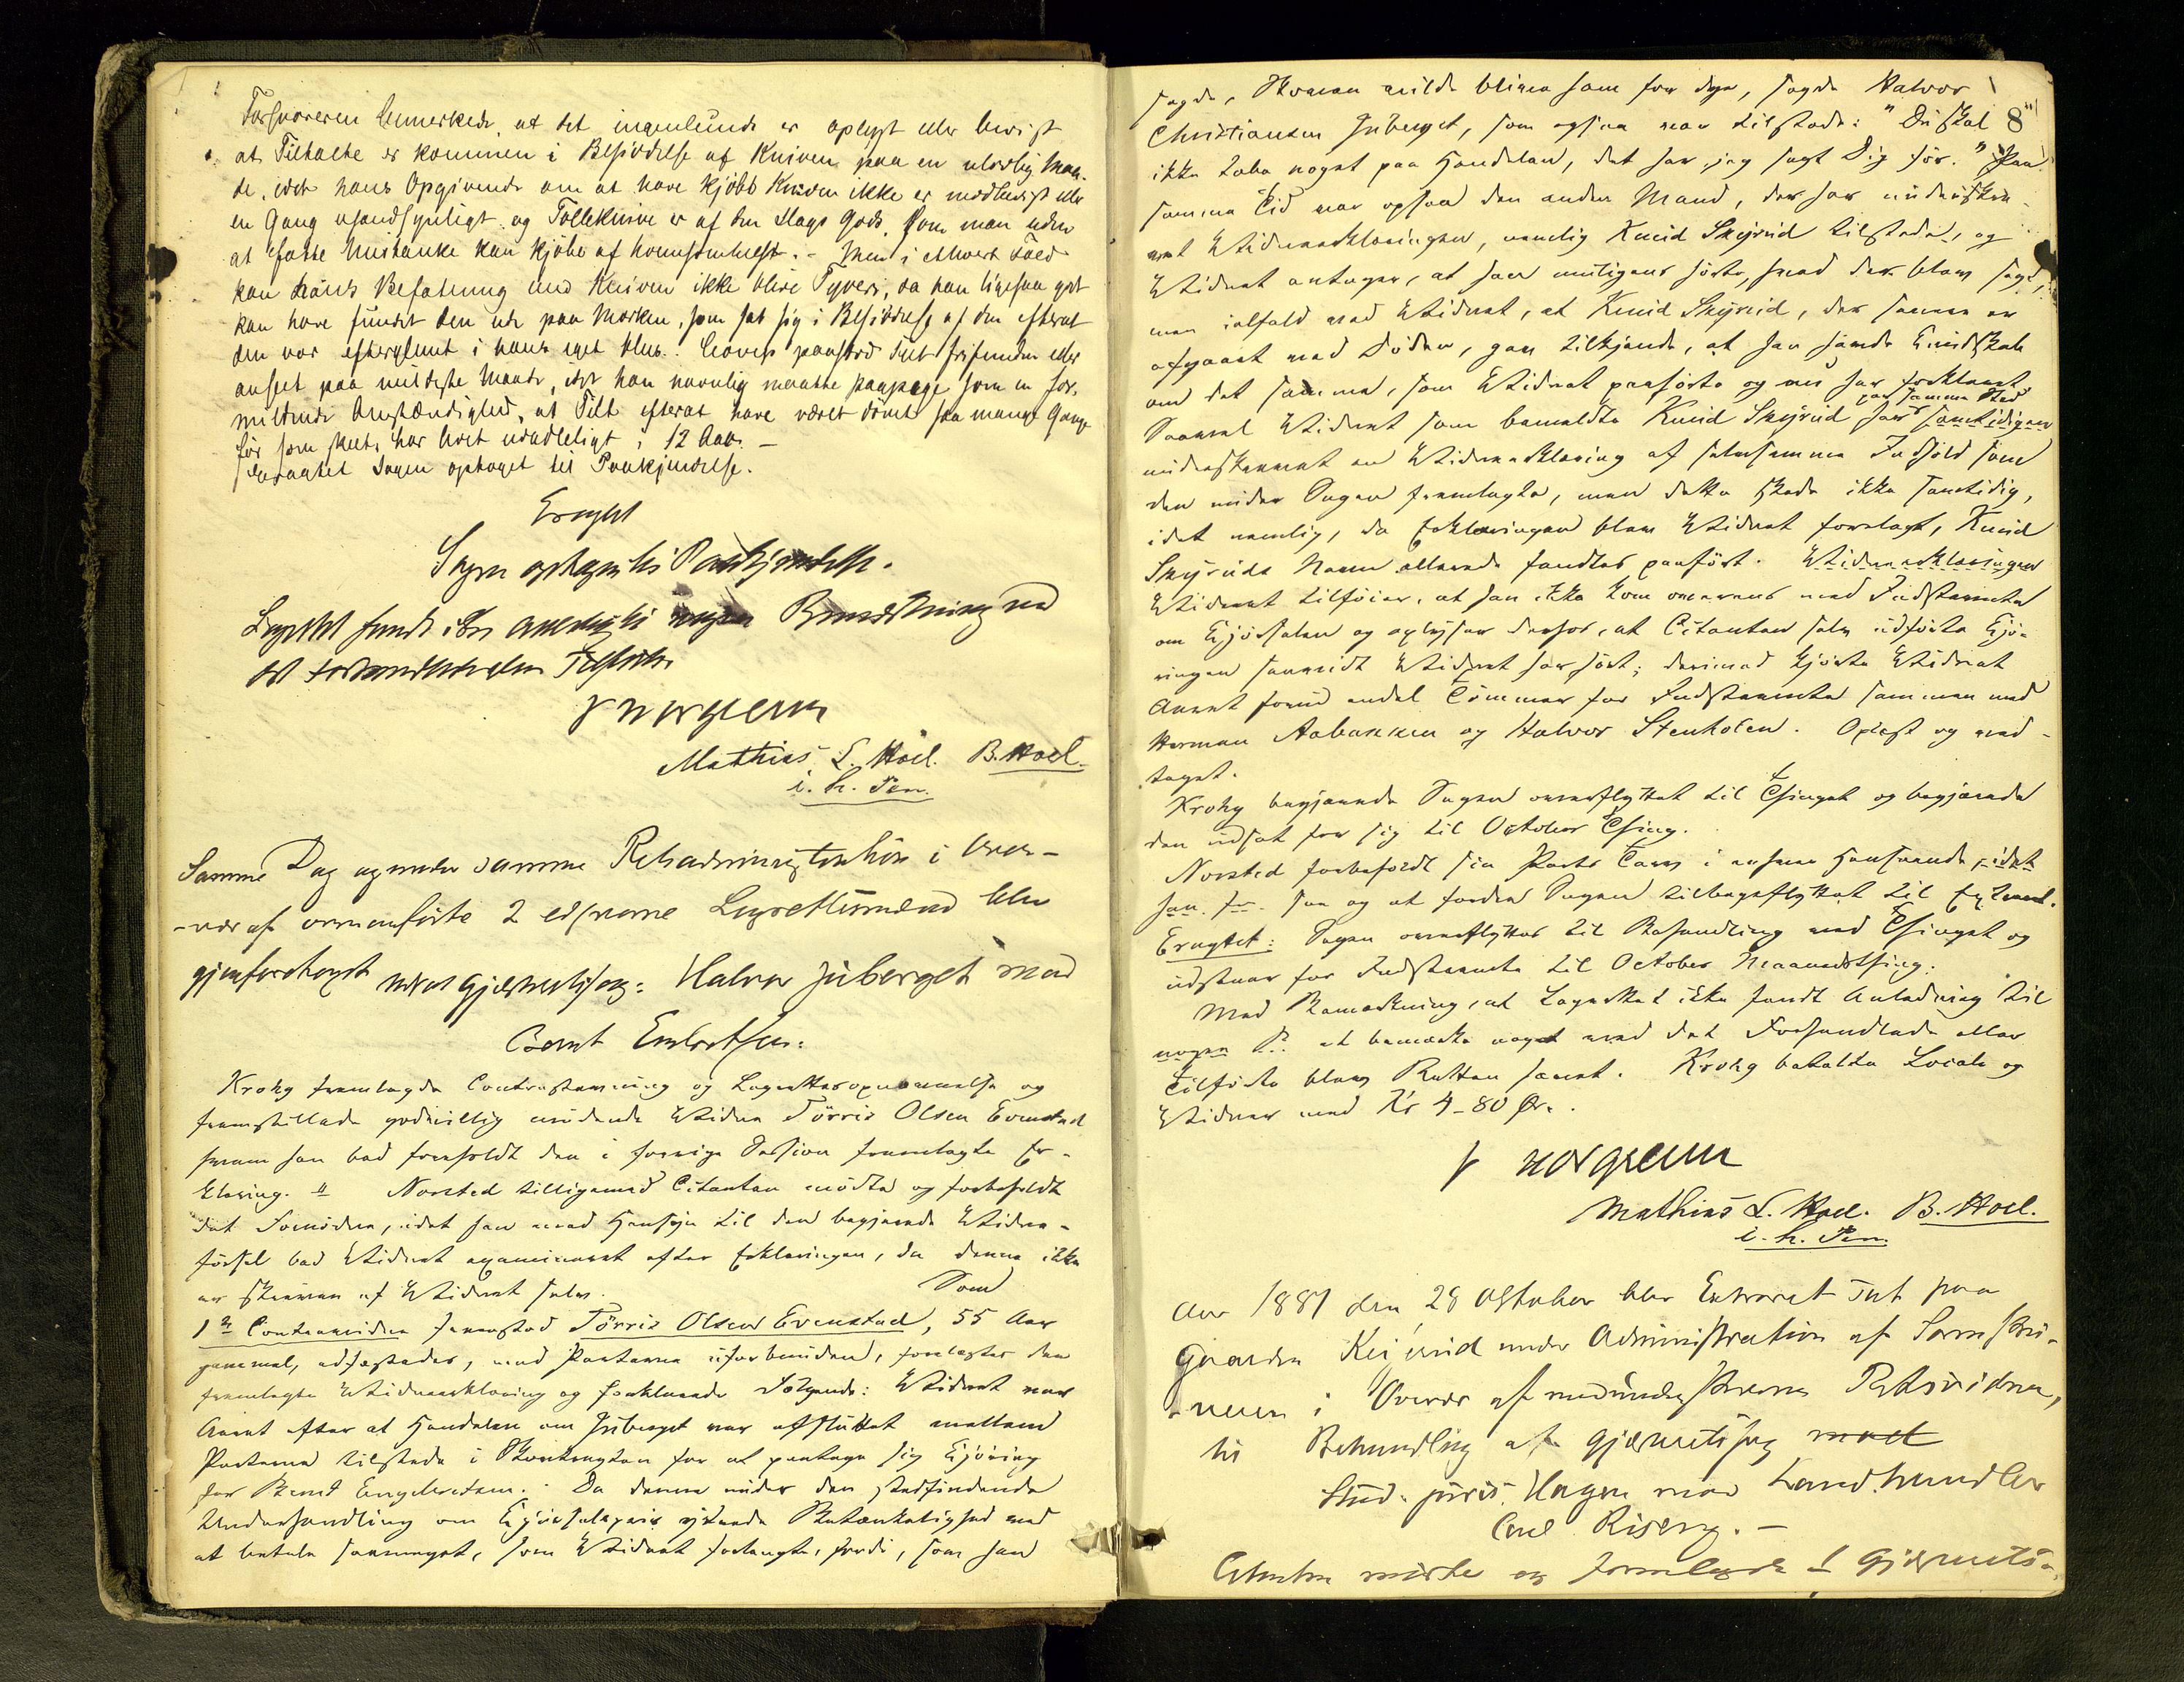 Forsvareren bemerkede, at det ingenlunde er oplyst eller bevist
at Tiltalte er kommen i Besiddelse af Kniven paa en ulovlig Maa-
de, idet hans Opgivende om at have kjøbt Kniven ikke er modbevist eller
en Gang usandsynligt og Tolleknive er af den Slags Gods, som man uden
at fatte Mistanke kan kjøbe af hvemsomhelst. - Men i ethvert Fald
kan hans Befatning med Kniven ikke blive Tyveri, da han ligesaa godt
kan have fundet den ude paa Marken, som sat sig i Besiddelse af den efterat
den var efterglemt i hans eget Hus. paastod Tilt frifunden eller
anseet paa mildeste Maade, idet han navnlig maatte paapege som en for-
mildende Omstændighed, at Tilt efterat have været dømt saa mange Gange
før som skeet, har levet udadleligt i 12 Aar. -
Sagen optaget til Paakjendelse.
Eragtet
Sagen optages til Paakjendelse.
Lagrettet fandt ikke Anledning til nogen Bemærkning ved
det Forhandlede eller Tilførte.
Mathias L. Hoel. B. Hoel.
i. h. Pen.
Samme Dag og under samme Retsadministration i Over-
-vær af ovenanførte 2 edsvorne Lagrettesmænd blev
gjenforetaget Gjæsteretssag: Halvor Juberget mod
Bernt Embretsen:
Krohg fremlagde Contrastevning og Lagrettesopnævnelse og
fremstillede godvillig mødende Vidne Tørris Olsen Evenstad
hvem han bad foreholdt den i forrige Session fremlagte Er-
klæring. Norsted tilligemed Citanten mødte og forbeholdt
det Fornødne, idet han med Hensyn til den begjærede Vidne-
førsel bad Vidnet examineret efter Erklæringen, da denne ikke
er skreven af Vidnet selv. Som
1ste Contravidne fremstod Tørris Olsen Evenstad, 55 Aar
gammel, edfæstedes, med Parterne uforbunden, forelagtes den
fremlagte Vidneerklæring og forklarede Følgende: Vidnet var
Aaret efter at Handelen om Juberget var afsluttet mellem
Parterne tilstede i for at paatage sig Kjøring
for Bernt Engebretsen. Da denne under den stedfindende
Underhandling om Kjørselspris yttrede Betænkelighed ved
at betale saameget, som Vidnet forlangte, fordi, som han
sagde, Skoven vilde blive ham for dyr, sagde Halvor
Christiansen Juberget, som ogsaa var tilstede: "Du skal 8
ikke tabe noget paa Handelen, det har jeg sagt Dig før." Paa
samme Tid var ogsaa den anden Mand, der har underskre-
vet Vidneerklæringen, nemlig Knud Skyrud tilstede, og
Vidnet antager, at han muligens hørte, hvad der blev sagt,
men ialfald ved Vidnet, at Knud Skyrud, der senere er
afgaaet ved Døden, gav tilkjende, at han havde Kundskab
om det samme, som Vidnet paahørte og nu har forklaret.
paa samme Sted
Saavel Vidnet som bemeldte Knud Skyrud har samtidigen
underskrevet en Vidneerklæring af selvsamme Indhold som
den under Sagen fremlagte, men dette skede ikke samtidig,
idet nemlig, da Erklæringen blev Vidnet forelagt, Knud
Skyruds Navn allerede fandtes paaført. Vidneerklæringen
Vidnet tilføier, at han ikke kom overens med Indstevnte
om Kjørselen og oplyser derhos, at Citanten selv udførte Kjø-
ringen saavidt Vidnet har hørt; derimod kjørte Vidnet
Aaret forud endel Tømmer for Indstevnte sammen med
Herman Aabakken og Halvor Stenholen. Oplæst og ved-
taget.
Krohg begjærede Sagen overflyttet til Thinget og begjærede
den udsat for sig til October Thing.
Norsted forbeholdt sin Parts Tarv i enhver Henseende, idet
han saa og at fordre Sagen tilbageflyttet til
Eragtet: Sagen overflyttes til Behandling ved Thinget og
udstaar for Indstevnte til October Maanedsthing.
Med Bemærkning, at Lagrettet ikke fandt Anledning til
nogen B. at bemærke noget ved det Forhandlede eller
Tilførte blev Retten hævet. Krohg betalte Locale og
Vidner med Kr 4-80 Øre.
Mathias L. Hoel. B. Hoel.
i. h. Pen.
Aar 1881 den 28 Oktober blev Extraret sat paa
Gaarden under Administration af Sorenskri-
-veren i Overvær af medunderskrevne Retsvidner,
til Behandling af Gjæsteretssag
Stud. juris. Hagen mod Landhandler
Carl Riserg. -
Citanten mødte og fremlagde 1 Gjæsterets-